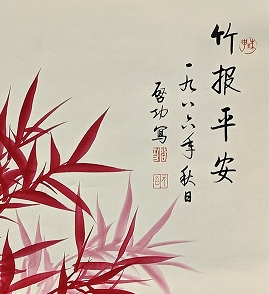 竹报平安
一九八六年秋日
启功写